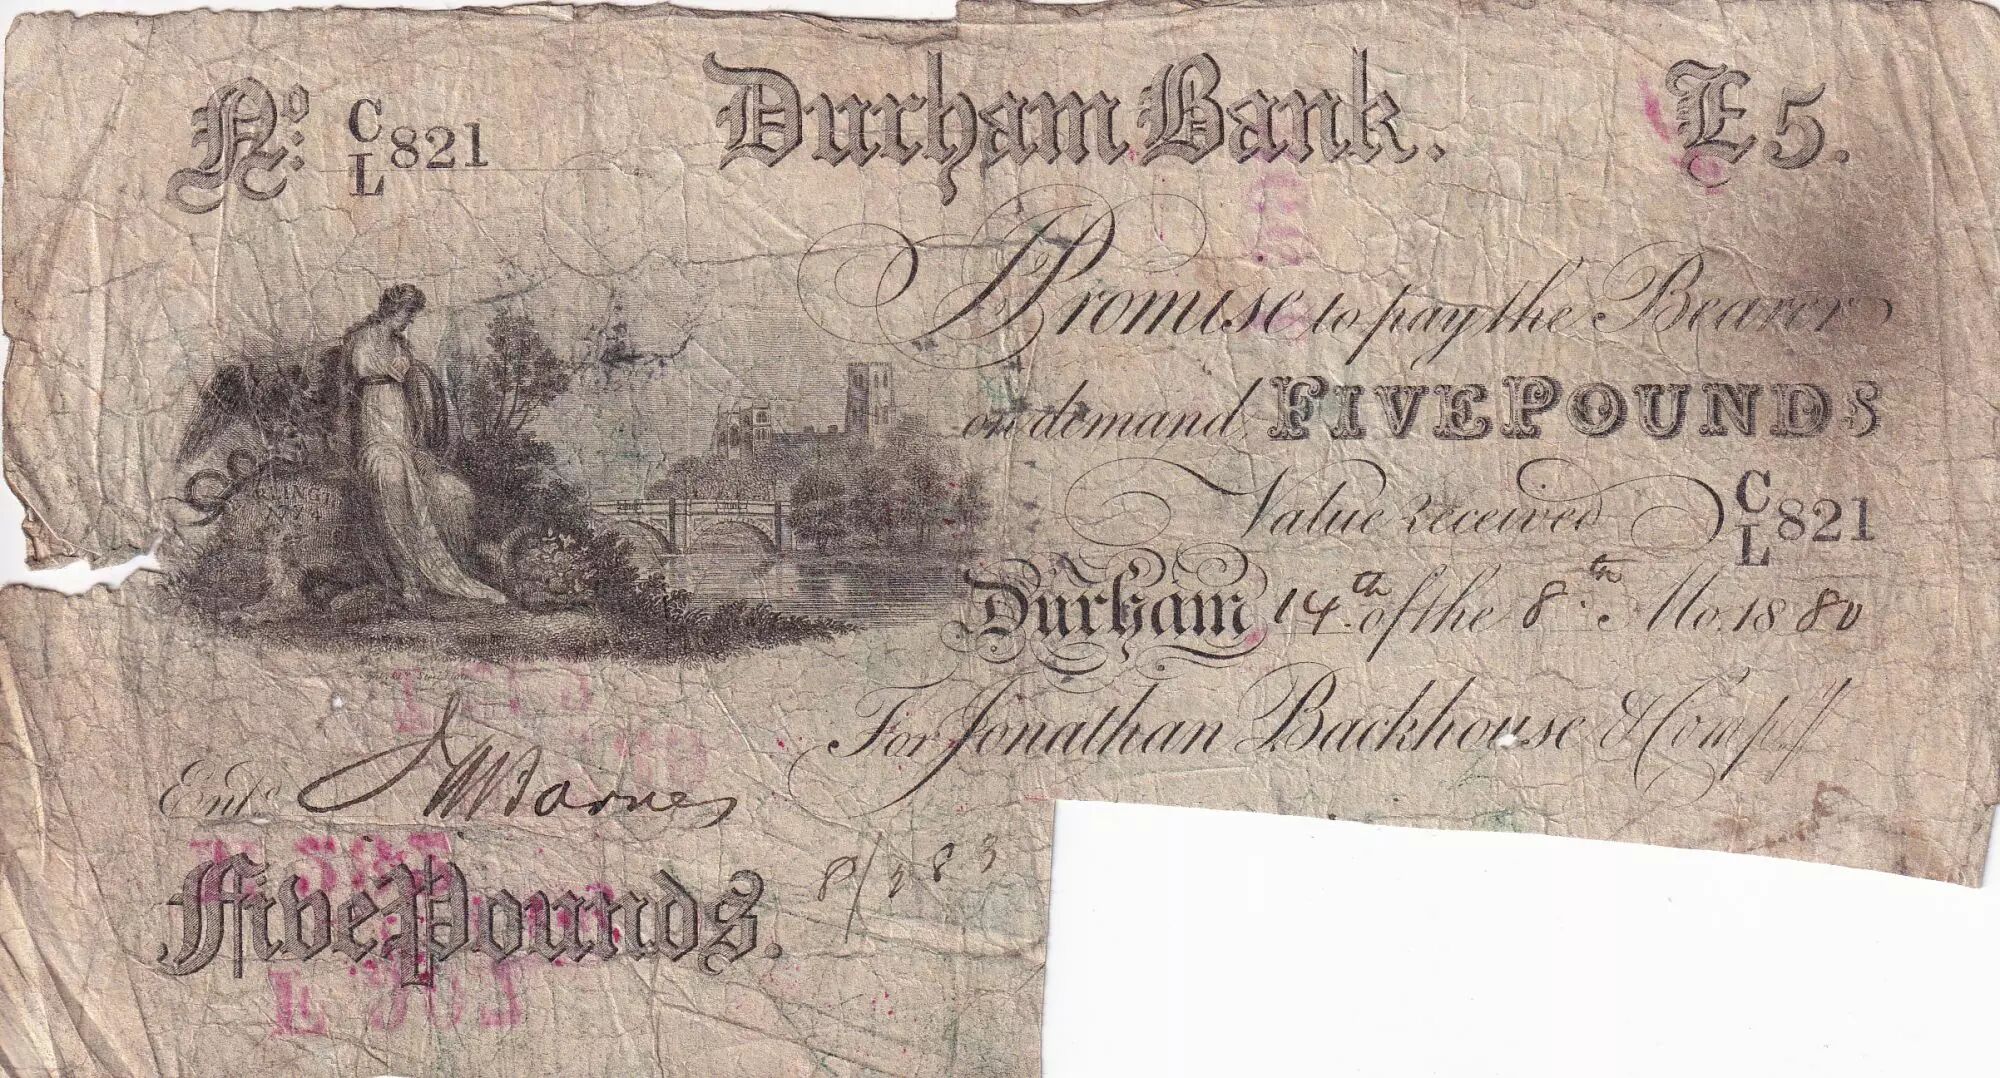 No: C/L 821 Durham Bank. £5.
I Promise to pay the Bearer
on demand, FIVE POUNDS
Value received C/L 821
Durham 14th of the 8th Mo. 1880
For Jonathan Backhouse & Compy
Entd J W Barnes
Five Pounds.